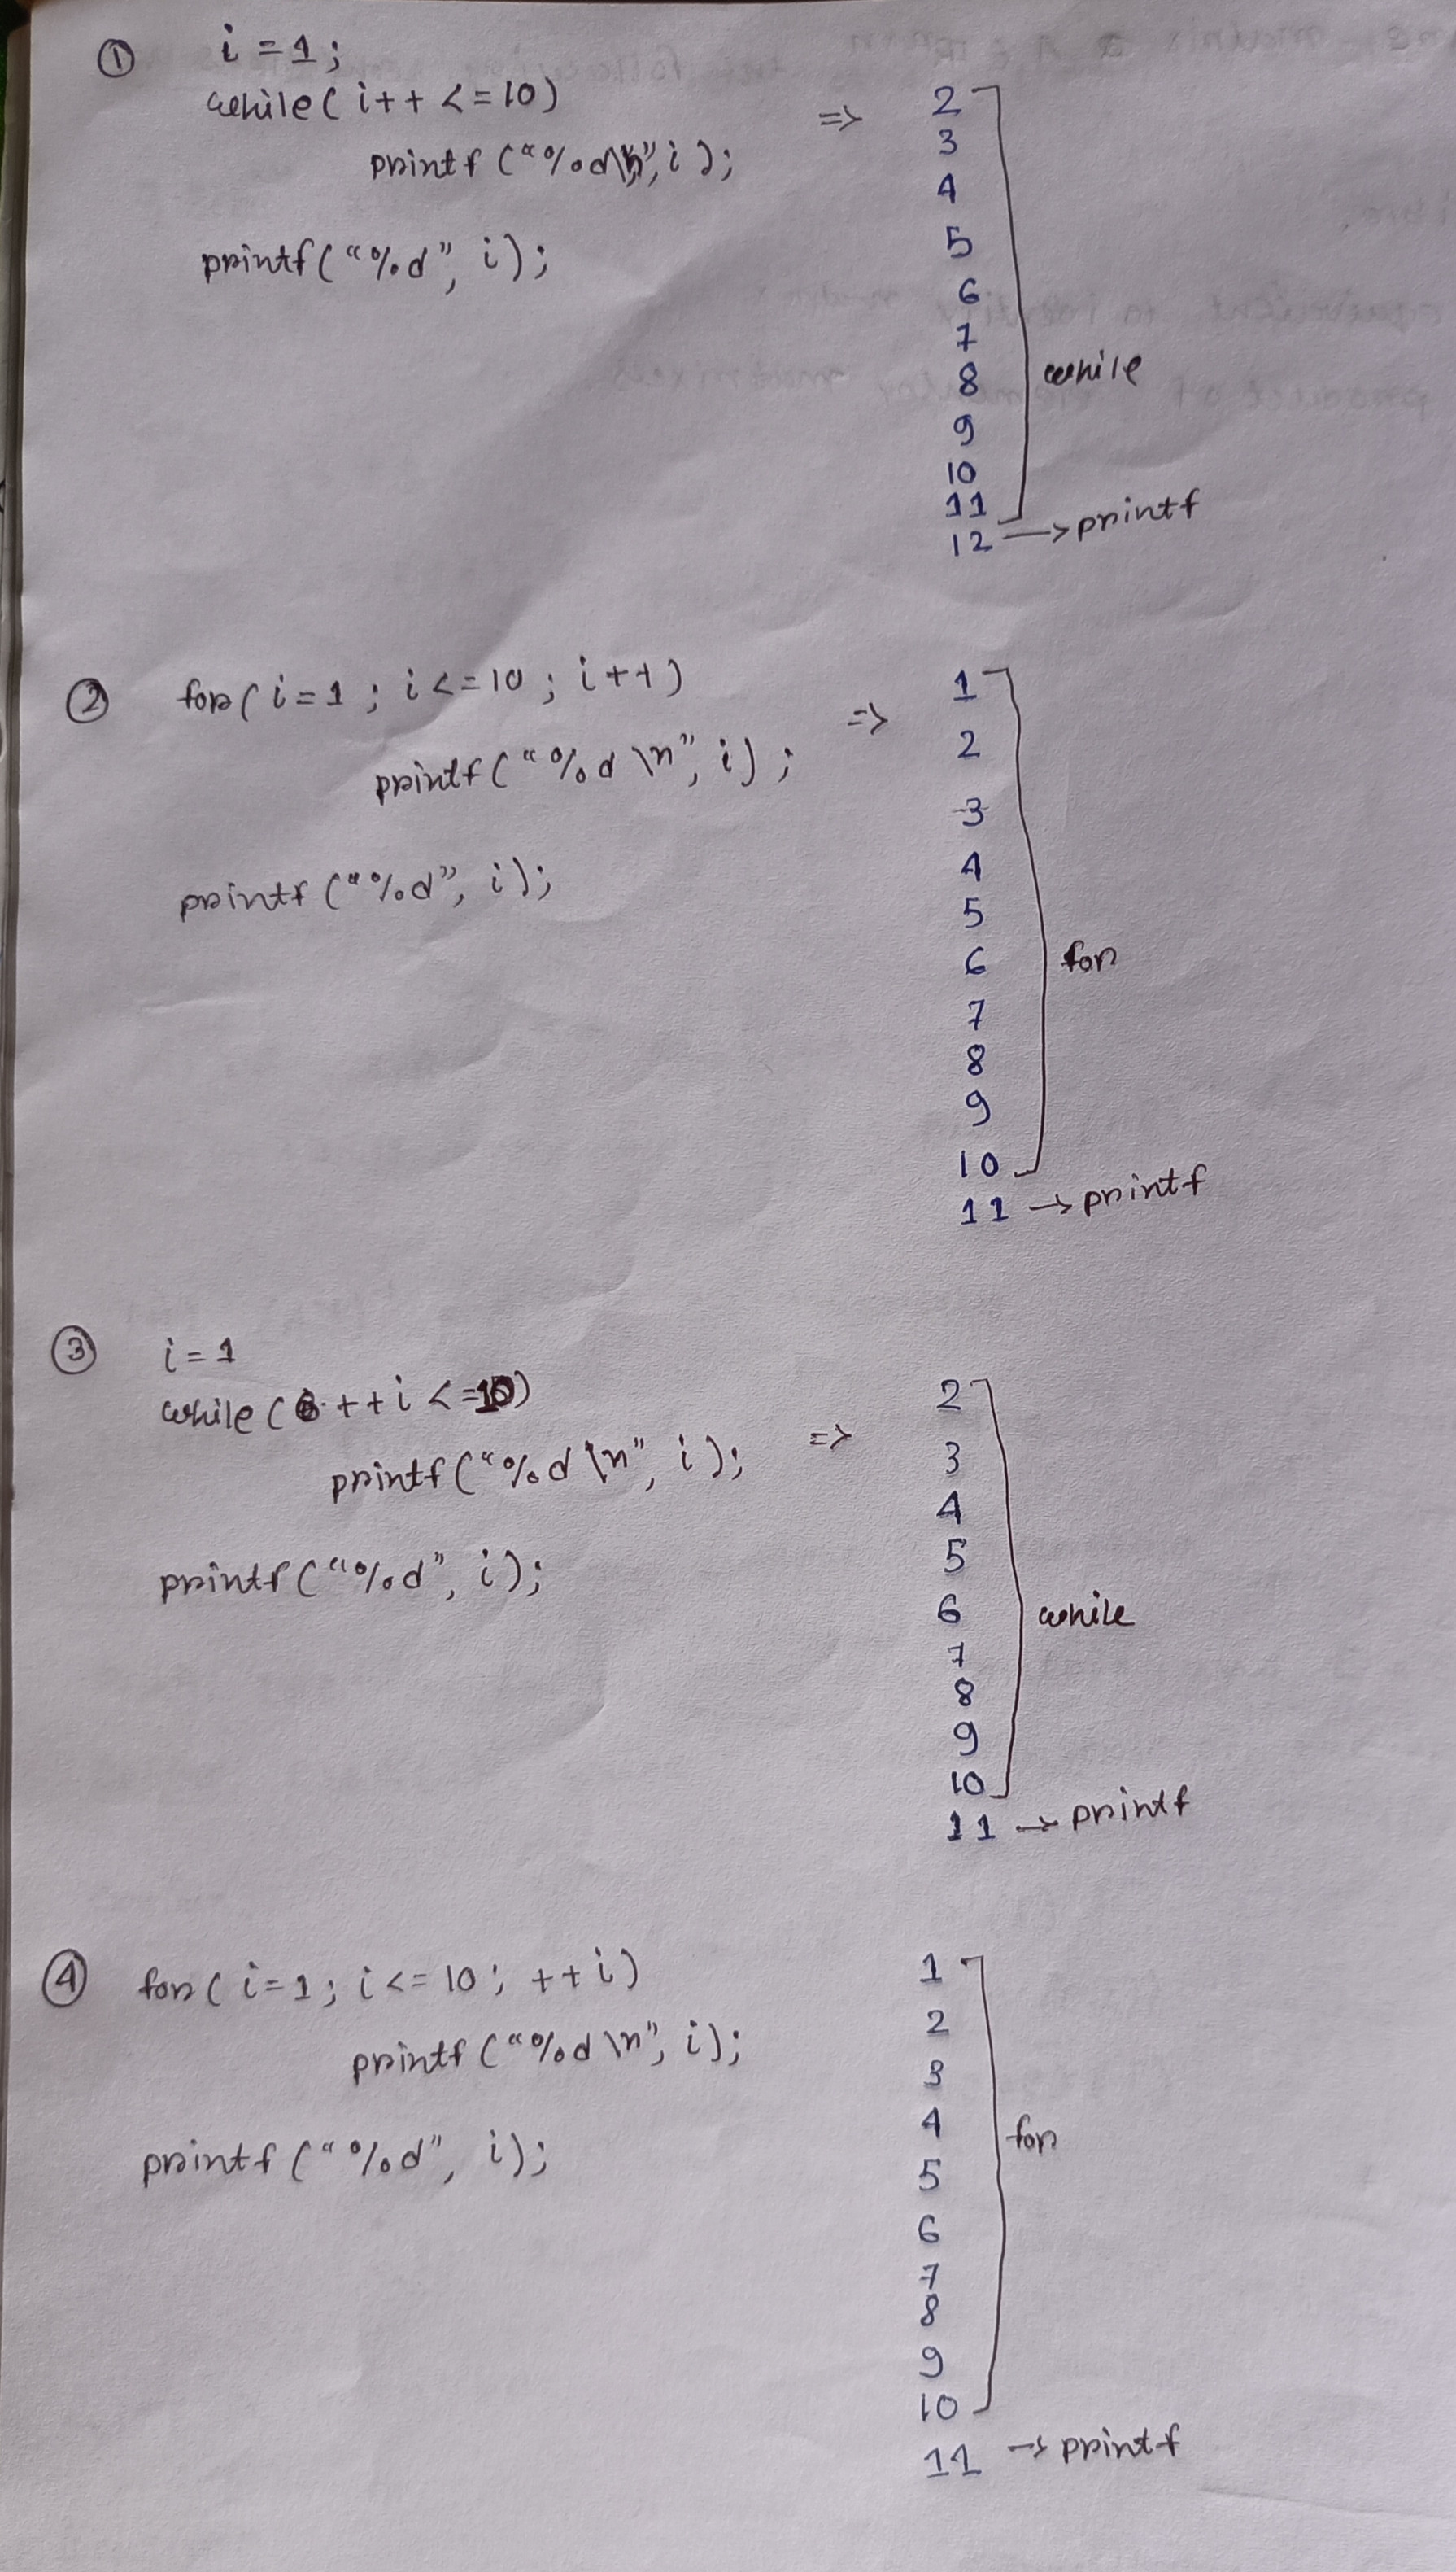 ① i = 1;
while ( i++ <= 10)
printf ("%d\n", i );
printf("%d", i);
=>
2
3
4
5
6
7
8
9
10
11
while
12 -> printf
② for ( i = 1 ; i <= 10 ; i++)
printf ("%d \n", i) ;
printf ("%d", i);
=>
1
2
3
4
5
6
7
8
9
10
for
11 -> printf
③ i = 1
while ( ++i <= 10)
printf ("%d \n", i );
printf ("%d", i);
=>
2
3
4
5
6
7
8
9
10
while
11 -> printf
④ for ( i = 1; i <= 10; ++i)
printf ("%d \n", i);
printf ("%d", i);
1
2
3
4
5
6
7
8
9
10
for
11 -> printf